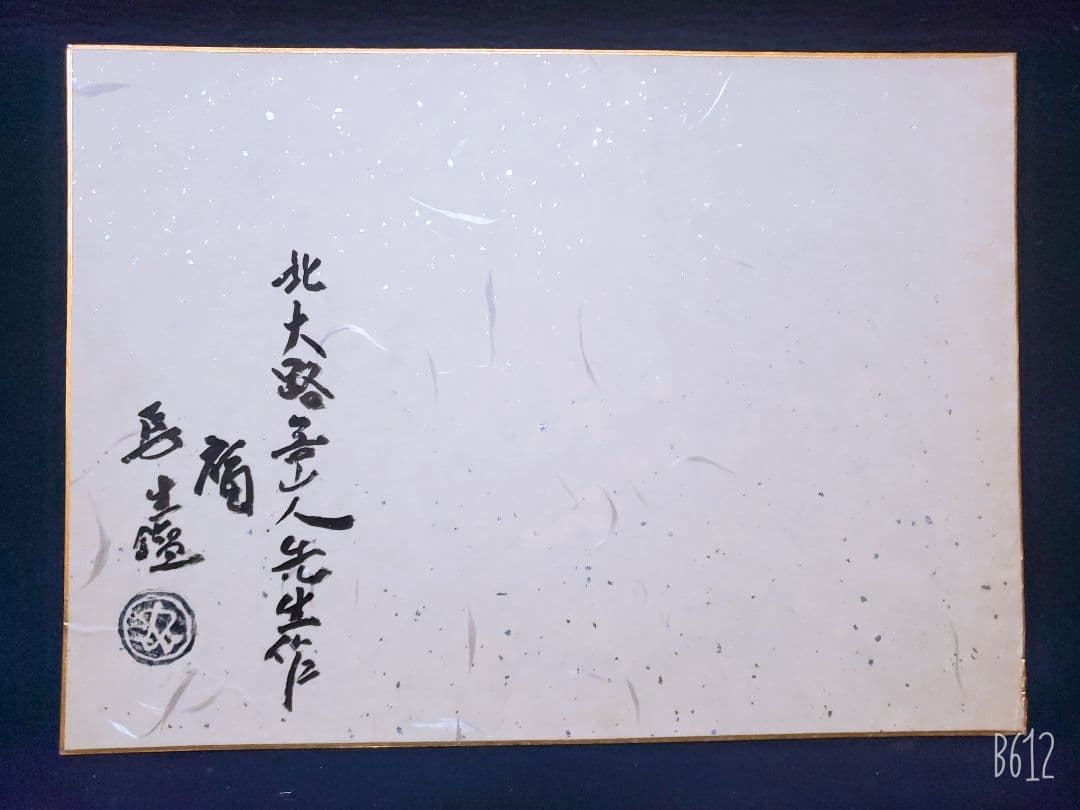 北大路魯山人先生作
福
生鑑
B612